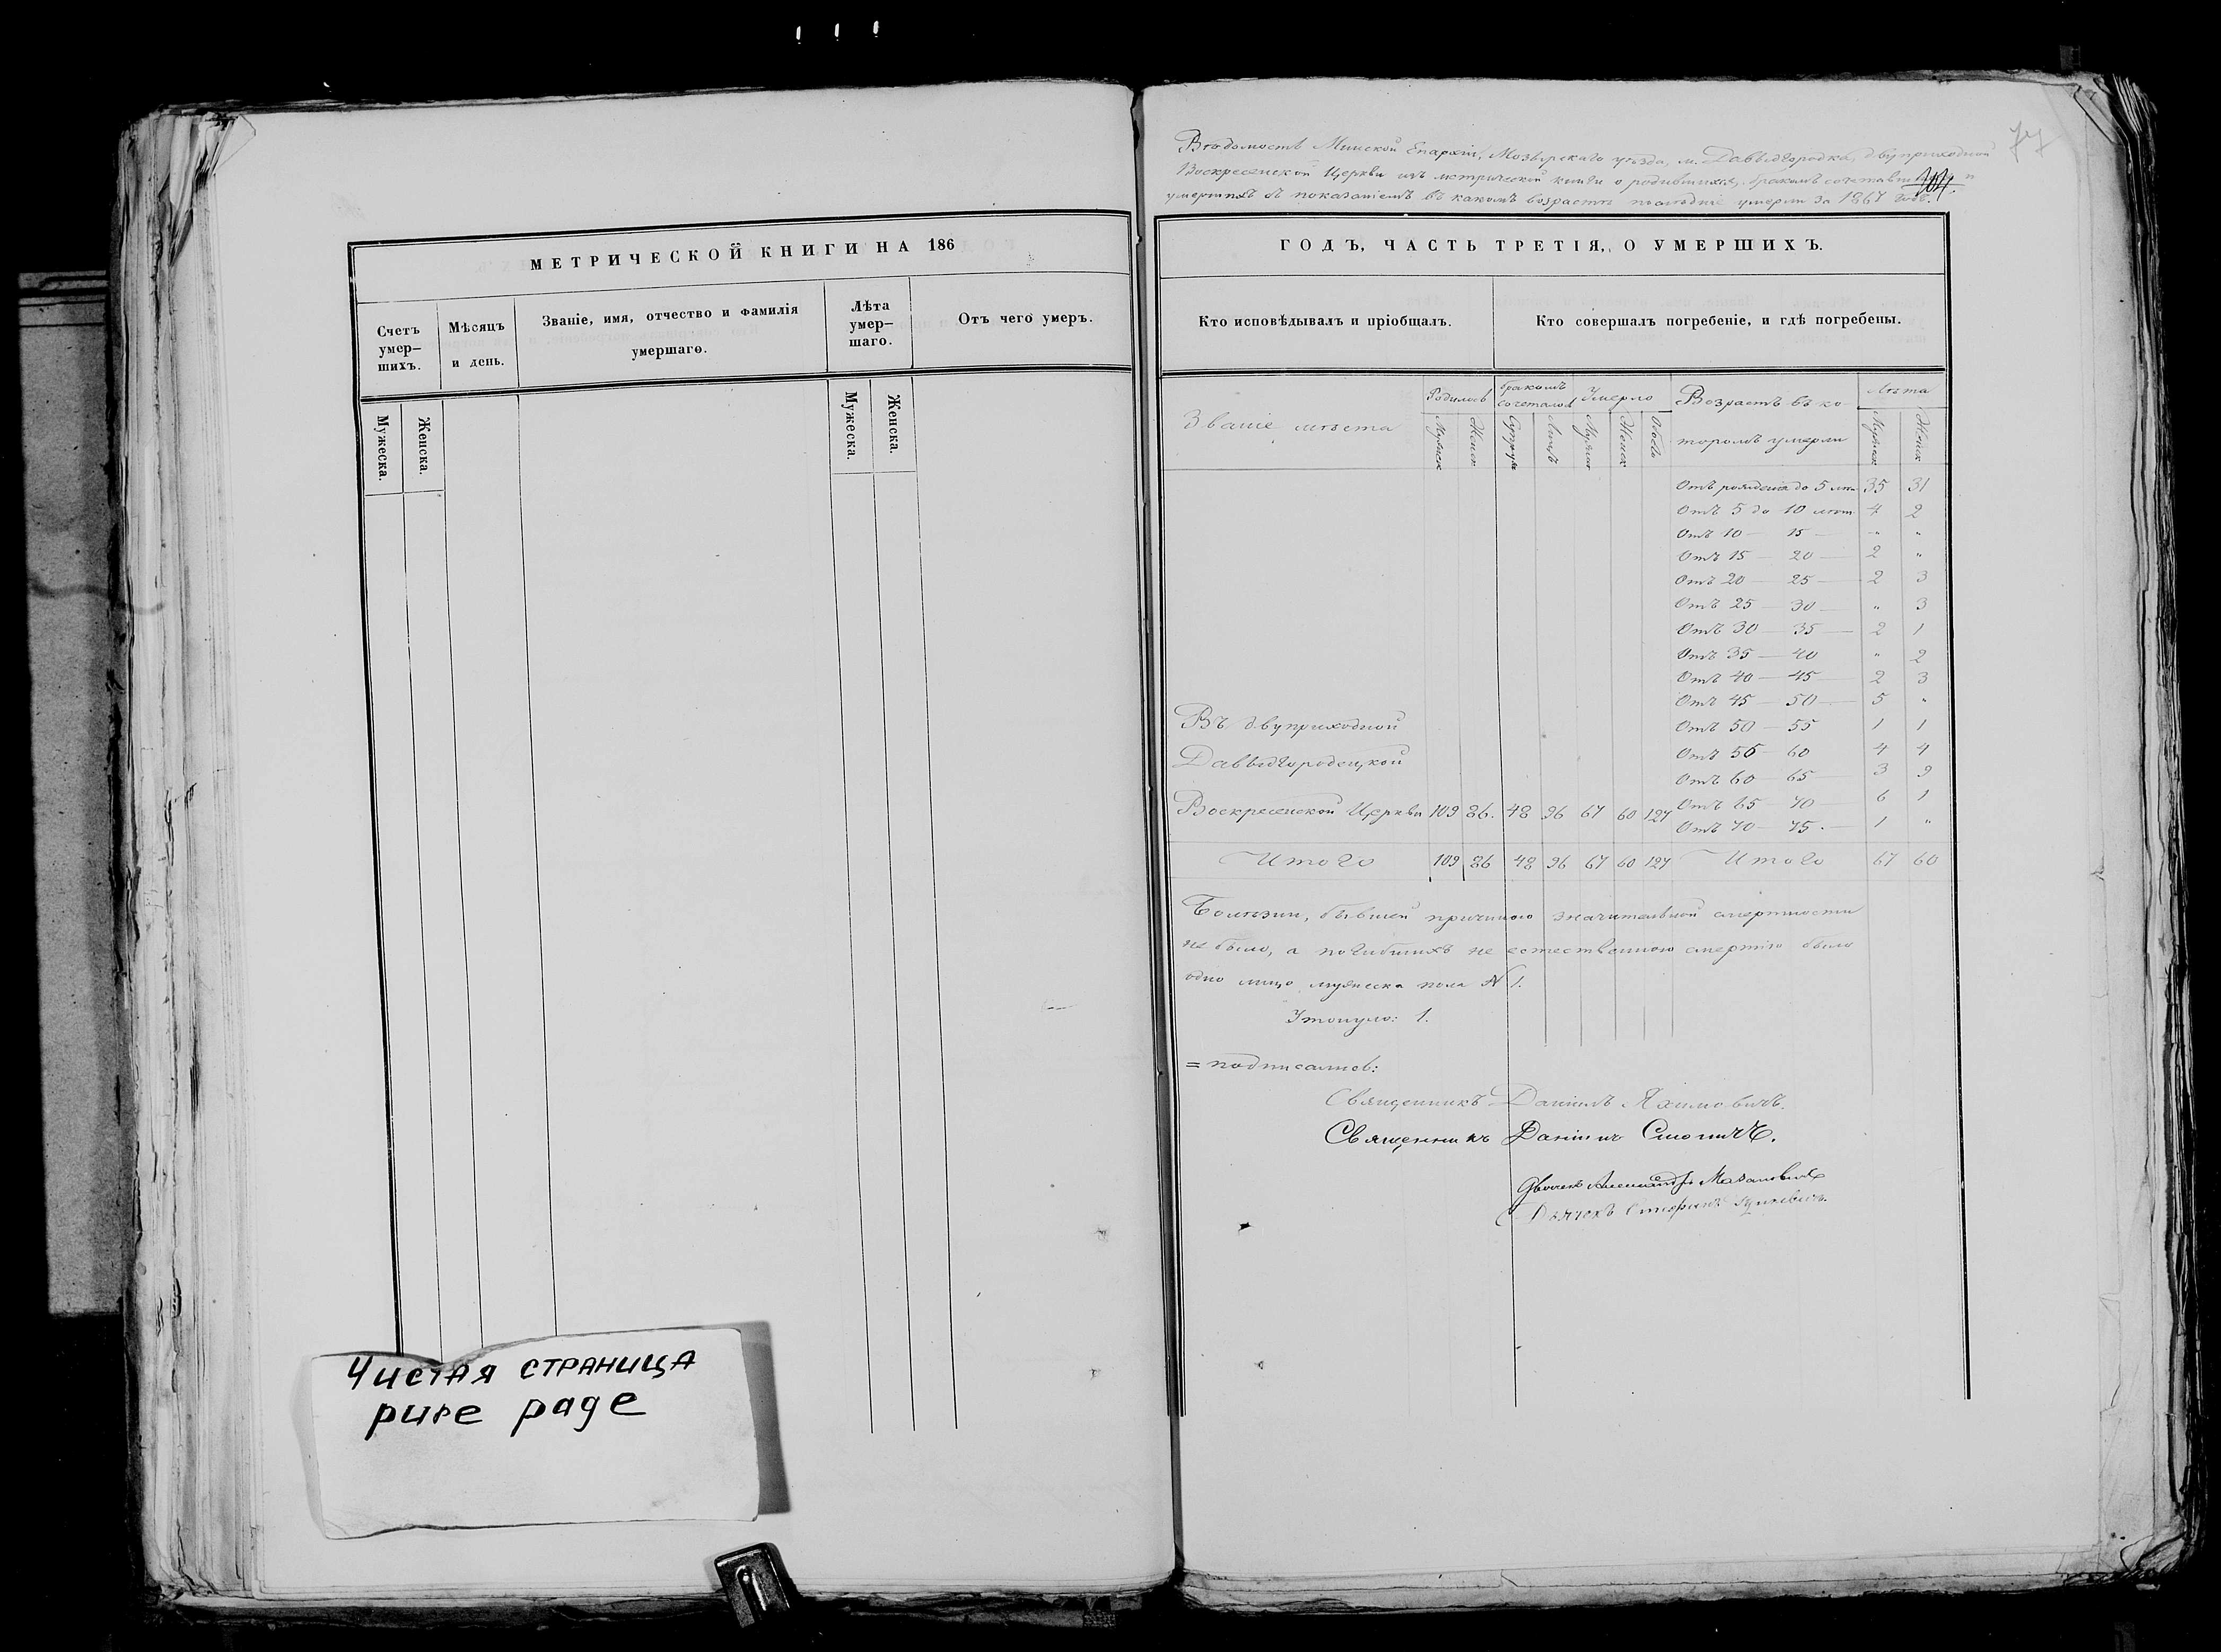 МЕТРИЧЕСКОЙ КНИГИ НА 186
Счетъ умер–шихъ.
Мѣсяцъ и день.
Званіе, имя, отчество и фамилія умершаго.
Лѣта умер–шаго.
Отъ чего умеръ.
Мужеска.
Женска.
Мужеска.
Женска.
Чистая страница
pure page
77
Вѣдомость Минской Епархіи, Мозырскаго уѣзда, м. Давыдгородка, двуприходной
Воскресенской Церкви изъ метрической книги о родившихся, бракомъ и
умершихъ съ показаніемъ въ какомъ возрастѣ послѣдніе умерли за 1867 годъ.
ГОДЪ, ЧАСТЬ ТРЕТІЯ, О УМЕРШИХЪ.
Кто исповѣдывалъ и пріобщалъ.
Кто совершалъ погребеніе, и гдѣ погребены.
Званіе мѣста
Родилось
бракомъ
Умерло
Возрастъ въ ко-
торомъ умерли
Лѣта
Мужск
Женск
Супруж
Лицъ
Мужск
Женск
Обоего
Мужск
Женск
Отъ рожденія до 5 лѣт 35 31
Отъ 5 до 10 лѣт 4 2
Отъ 10 — 15 — „ „
Отъ 15 — 20 — 2 „
Отъ 20 — 25 — 2 3
Отъ 25 — 30 — „ 3
Отъ 30 — 35 — 2 1
Отъ 35 — 40 „ 2
Отъ 40 — 45 2 3
Отъ 45 — 50 — 5 „
Отъ 50 — 55 1 1
Отъ 55 — 60 4 4
Отъ 60 — 65 3 9
Отъ 65 — 70 6 1
Отъ 70 — 75. — 1 „
Въ двуприходной
Давыдгородецкой
Воскресенской Церкви 109 86. 48 96 67 60 127
Итого 109 86 48 96 67 60 127 Итого 67 60
Болѣзни, бывшей причиною значительной смертности
не было, а погибшихъ не естественною смертію было
одно лицо мужеска пола № 1.
Утонуло: 1.
= подписались:
Священникъ Даніилъ Яхимовичъ.
Священникъ Даніилъ Смоличъ.
Александръ
Дьячекъ Стефанъ